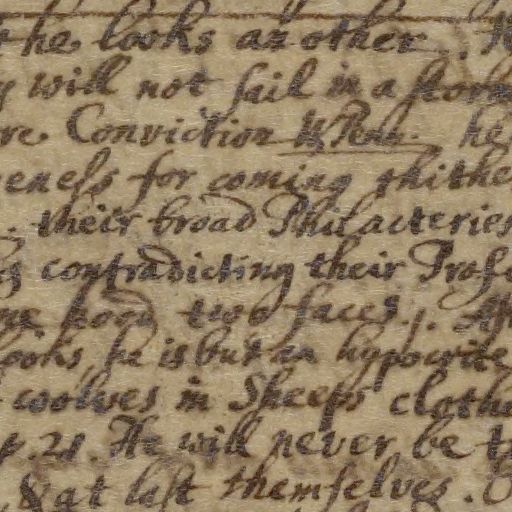 he looks another
will not sail in a storm
Conviction W Penn. he
for coming thither
their broad Philacteries
contradicting their Profe
hood two faces
looks, he is but an hypocrite
woolves in Sheeps cloth
p. 21. He will never be
& at last themselves.